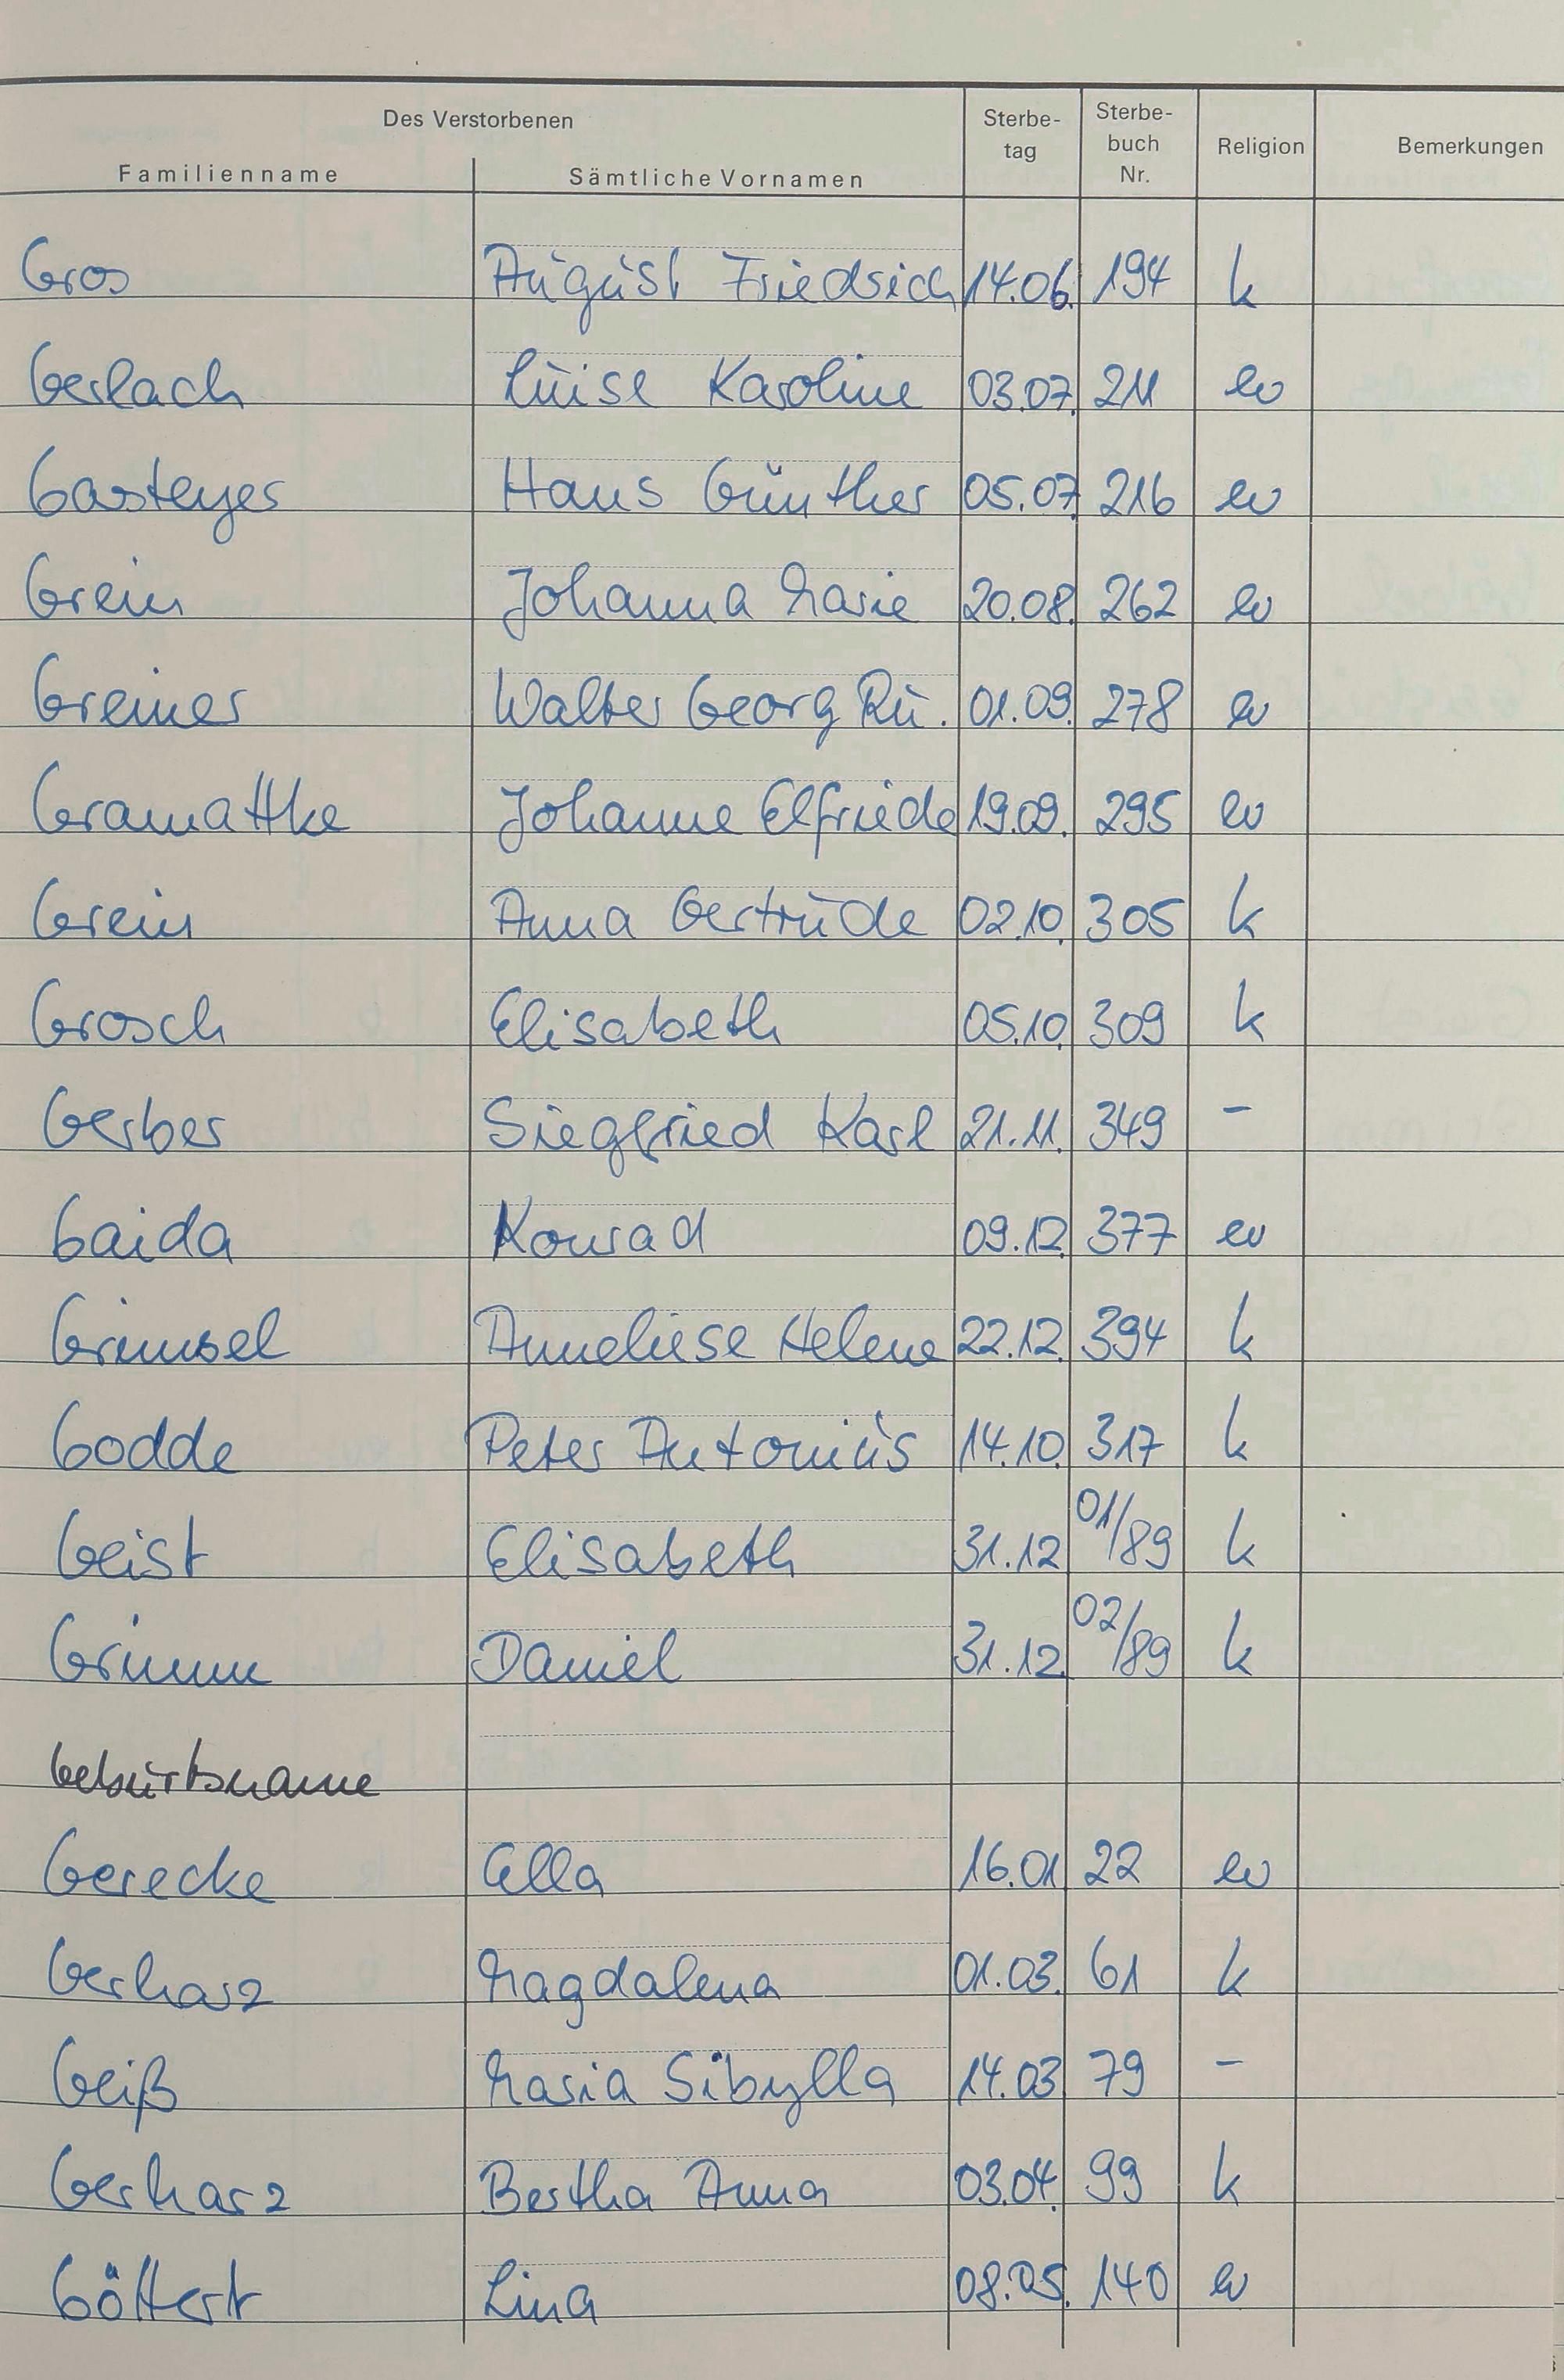 Des Verstorbenen
Familienname Sämtliche Vornamen Sterbe-tag Sterbe-buch Nr. Religion Bemerkungen
Gros August Friedrich 14.06. 194 k
Gerlach Luise Karoline 03.07. 211 ev
Gasteyer Hans Günther 05.07. 216 ev
Grein Johanna Marie 20.08. 262 ev
Greiner Walter Georg Ru. 01.09. 278 ev
Gramattke Johanne Elfriede 19.09. 295 ev
Grein Anna Gertrude 02.10. 305 k
Grosch Elisabeth 05.10. 309 k
Gerber Siegfried Karl 21.11. 349 -
Gaida Konrad 09.12. 377 ev
Grimsel Anneliese Helene 22.12. 394 k
Godde Peter Antonius 14.10. 317 k
Geist Elisabeth 31.12 01/89 k
Grimm Daniel 31.12. 02/89 k
Geburtsname
Gerecke Ella 16.01 22 ev
Gerharz Magdalena 01.03. 61 k
Geiß Maria Sibylla 14.03 79 -
Gerharz Bertha Anna 03.04. 99 k
Göttert Lina 08.05. 140 ev